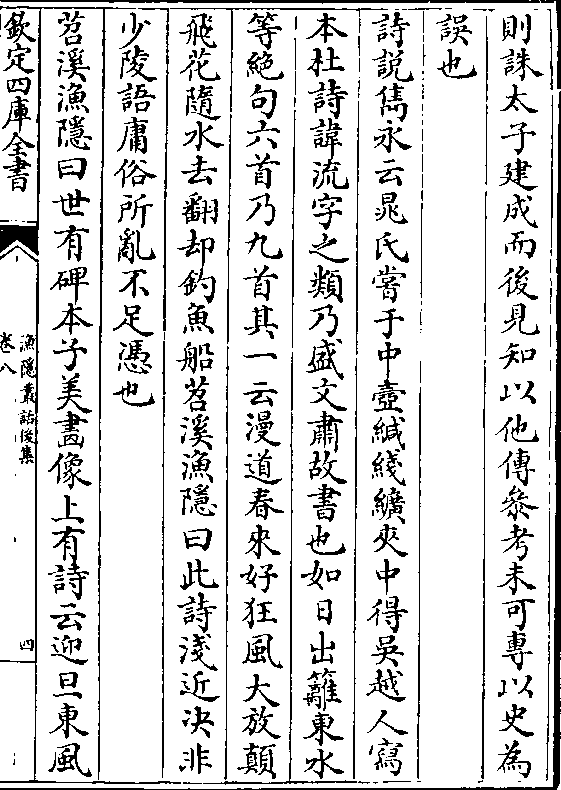 則誅太子建成而後見知以他傳叅考未可專以史為
誤也
詩説雋永云晁氏嘗于中壼緘綫纊夾中得吳越人寫
本杜詩諱流字之類乃盛文肅故書也如日出籬東水
等絶句六首乃九首其一云漫道春來好狂風大放顛
飛花隨水去翻却釣魚船苕溪漁隱曰此詩淺近決非
少陵語庸俗所亂不足憑也
苕溪漁隱曰世有碑本子美畫像上有詩云迎旦東風
欽定四庫全書
漁隱叢話後集
卷八
四